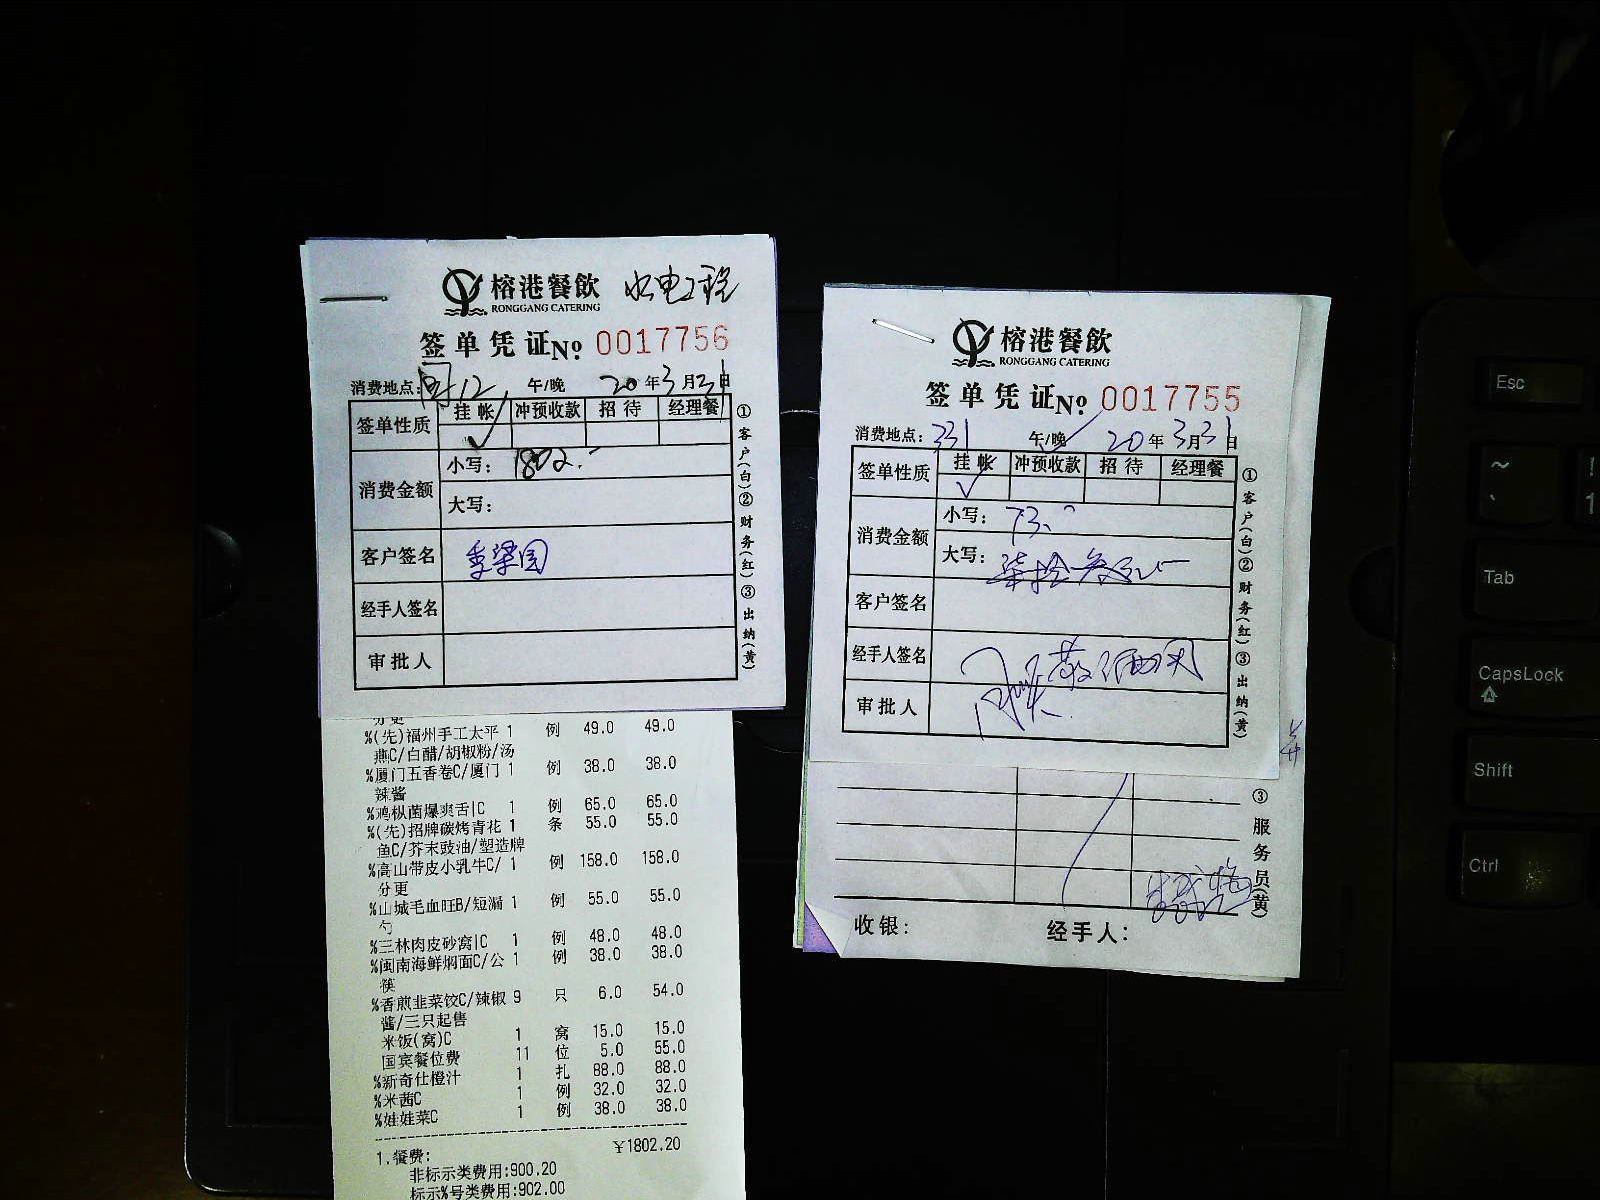 榕港餐飲 水电工程
RONGGANG CATERING
签单凭证 No. 0017756
消费地点: 12 午/晚 20年3月31日
签单性质 挂帐 冲预收款 招待 经理餐
✓
消费金额 小写: 1802.-
大写:
客户签名 季梁园
经手人签名
审批人
①客户(白)②财务(红)③出纳(黄)
分更
%(先)福州手工太平 1 例 49.0 49.0
燕C/白醋/胡椒粉/汤
%厦门五香卷C/厦门 1 例 38.0 38.0
辣酱
%鸡枞菌爆爽舌|C 1 例 65.0 65.0
%(先)招牌碳烤青花 1 条 55.0 55.0
鱼C/芥末豉油/塑造牌
%高山带皮小乳牛C/ 1 例 158.0 158.0
分更
%山城毛血旺B/短漏 1 例 55.0 55.0
勺
%三林肉皮砂窝|C 1 例 48.0 48.0
%闽南海鲜焖面C/公 1 例 38.0 38.0
筷
%香煎韭菜饺C/辣椒 9 只 6.0 54.0
酱/三只起售
米饭(窝)C 1 窝 15.0 15.0
国宾餐位费 11 位 5.0 55.0
%新奇仕橙汁 1 扎 88.0 88.0
%米茜C 1 例 32.0 32.0
%娃娃菜C 1 例 38.0 38.0
1.餐费: ¥1802.20
非标示类费用:900.20
标示%号类费用:902.00
榕港餐飲
RONGGANG CATERING
签单凭证 No. 0017755
消费地点: 331 午/晚 20年3月31日
签单性质 挂帐 冲预收款 招待 经理餐
✓
消费金额 小写: 73.-
大写: 柒拾叁元-
客户签名
经手人签名
审批人
①客户(白)②财务(红)③出纳(黄)
③服务员(黄)
收银: 经手人:
Esc
~
`
!
1
Tab
CapsLock
Shift
Ctrl